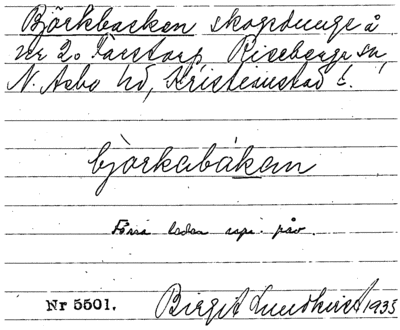 Björkbacken skogsdunge å
nr 20 Färstorp Riseberga sn,
N. Åsbo hd, Kristianstad l.
bjørkabákan
Förra leden supi. påv.
Nr 5501. Birgit Lundkvist 1935